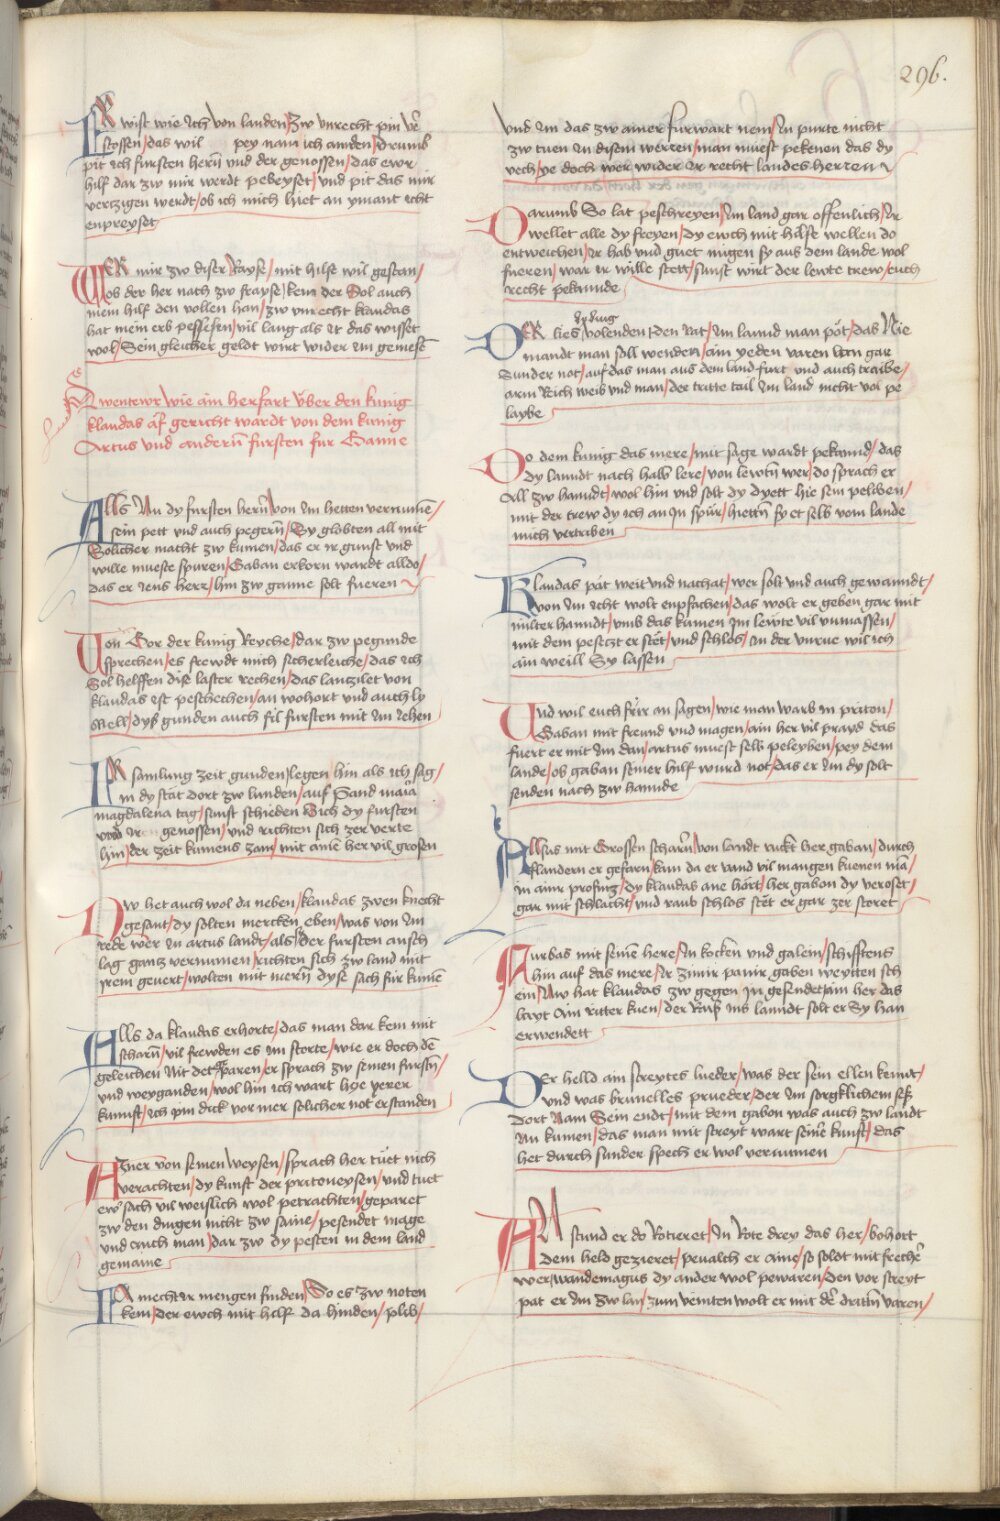 296.
ER wist wie Ich von landen/zw vnrecht pin v̄e
stossen/das wil pey nam ich annden/drumb
pit ich fursten herñ vnd der genossen/das ewr
hilf dar zw mir werdt pebeyset/vnd pit das mir
vertzigen werdt/ob ich mich hiet an ymant icht
enpreyset
WER mir zw diser Rayse/mit hilfe wil gestan/
ob der her nach zw frayse/kem der Sol auch
mein hilf den vollen han/zw vnrecht klaudas
hat mein erb pesessen/vil lang als Ir das wisset
wol/Sein gleicher geldt wirt wider Im gemessē
Awentewr wie ain herfart Vber den kunig
klaudas auf gericht wardt von dem kunig
Artus vnd andern̄ fursten fur Ganne
Alls Nu dy fursten herñ/von Im hetten vernumē/
sein pett vnd auch pegerñ/Sy globten all mit
Solicher macht zw kumen/das er Ir gunst vnd
wille mueste spuren/Gaban erkorn wardt alldo/
das er Iens herr/hin zw ganne solt fueren
Von Gor der kunig Reyche/dar zw pegunde
sprechen/es frewdt mich sicherleiche/das ich
Sol helffen dise laster rechen/das lantzilet von
klaudas ist peschechen/an wohort vnd auch ly
onell/dyß gunden auch fil fursten mit Im Iehen
IR samlung zeit gunden/legen hin als ich sag/
in dy stat dort zw lunden/auf Sand maria
magdalena tag/sunst schieden Sich dy fursten
vnd Ir genossen/vnd richten sich zer verte
hin/der zeit kumens zam/mit ainē her vil grosen
Nw het auch wol da neben/klaudas zwen knecht
gesant/dy solten mercken eben/was von Im
rede wer In artus landt/als der fursten ansch
lag gantz vernumen/richten sich zw land mit
Irem geuert/wolten mit mern̄ dyse sach fur kumē
Alls da klaudas erhorte/das man dar kem mit
scharñ/vil frewden es Im storte/wie er doch dē
geleichen Nit det paren/er sprach zw seinen furstñ/
vnd weyganden/wol hin ich wart hye yerer
kunnft/ich pin dick vor mer solicher not erstanden
Ainer von seinen weysen/sprach her tüet nich
verachten/dy kunst der pritoneysen/vnd tuet
ew̄ sach vil weislich wol petrachten/geparet
zw den dingen nicht zw saine/pesendet mage
vnd auch man/dar zw dy pesten in dem land
gemaine
Ir mecht Ir mengen finden/So es zw noten
kem/der ewch mit hilf da hinden/plib/
vnd Im das zw ainer furwart nem/In purte nicht
zw tuen In disem werren/man muest pekenen das dy
vech/ye doch wer wider Ir recht landes herren
Darumb So lat peschreyen/Im land gar offenlich/Ir
wellet alle dy freyen/dy ewch mit hilfe wellen do
entweichen/Ir hab vnd guet mugen sy aus dem lande wol
fueren/war Ir wille stett/sunst wirt der lewte trew/euch
recht pekunde
dydung
DER lies volenden/den Rat/Im lannd man pot/das Nie
mandt man soll wenden/ain yeden varen lan gar
Sunder not/auf das man aus dem land furt vnd auch traibe/
arm Rich weib vnd man/der tritte tail Im land nicht vol pe
laybe
Do dem kunig das mere/mit sage wardt pekannd/das
dy lanndt nach halb lere/von lewtñ wer/do sprach er
All zw hanndt/wol hin vnd solt dy dyett hie sein peliben/
mit der trew dy ich an In spür/hietten sy et selb vom lande
mich vertriben
Klaudas pat weit vnd nachat/wer solt vnd auch gewanndt/
von Im icht wolt enpfachen/das wolt er geben gar mit
milter hanndt/vmb das kamen Im lewte vil vnmassen/
mit dem pesetzt er stet/vnd schlos/In der vnrue wil ich
ain weill Sy lassen
Vnd wil euch fur an sagen/wie man warb in priton/
Gaban mit freund vnd magen/ain her vil prayd das
fuert er mit Im dan/artus muest selb peleyben/pey dem
lande/ob gaban seiner hilf wurd not/das er Im dy solt
senden nach zw hannde
Allsus mit Grossen scharñ/von landt ruckt her gaban/durch
flandern er gefarn/kam da er vand vil mangen kuenen mā/
in ainr profintz/dy klaudas ane hört/her gabon dy veroset/
gar mit schlacht/vnd raub schlos stet er gar zer storet
Furbas mit seinē here/In kocken vnd galein/schifftens
hin auf das mere/Ir zimir panir gaben weytten sch
ein/Nw hat klaudas zw gegen In gesendet/ain her das
layt Ain ritter kuen/der Rais Ins lanndt solt er Sy han
erwendett
Der helld ain streytes lueder/was der sein ellen kennt/
vnd was brunelles prueder/der Im sorgklichem seß
dort Nam Sein endt/mit dem gabon was auch zw landt
Nu kumen/das man mit streyt wart seinē kunfft/das
het durch sunder spech er wol vernumen
NV stund er do Rotieret/In Rote drey das her/bohort
dem held gezieret/peualch er aine/so soldt mit frechē
wer/wandemagus dy ander wol pewaren/den vor streyt
pat er Im zw lan/zum vēinten wolt er mit dē drittñ varen/